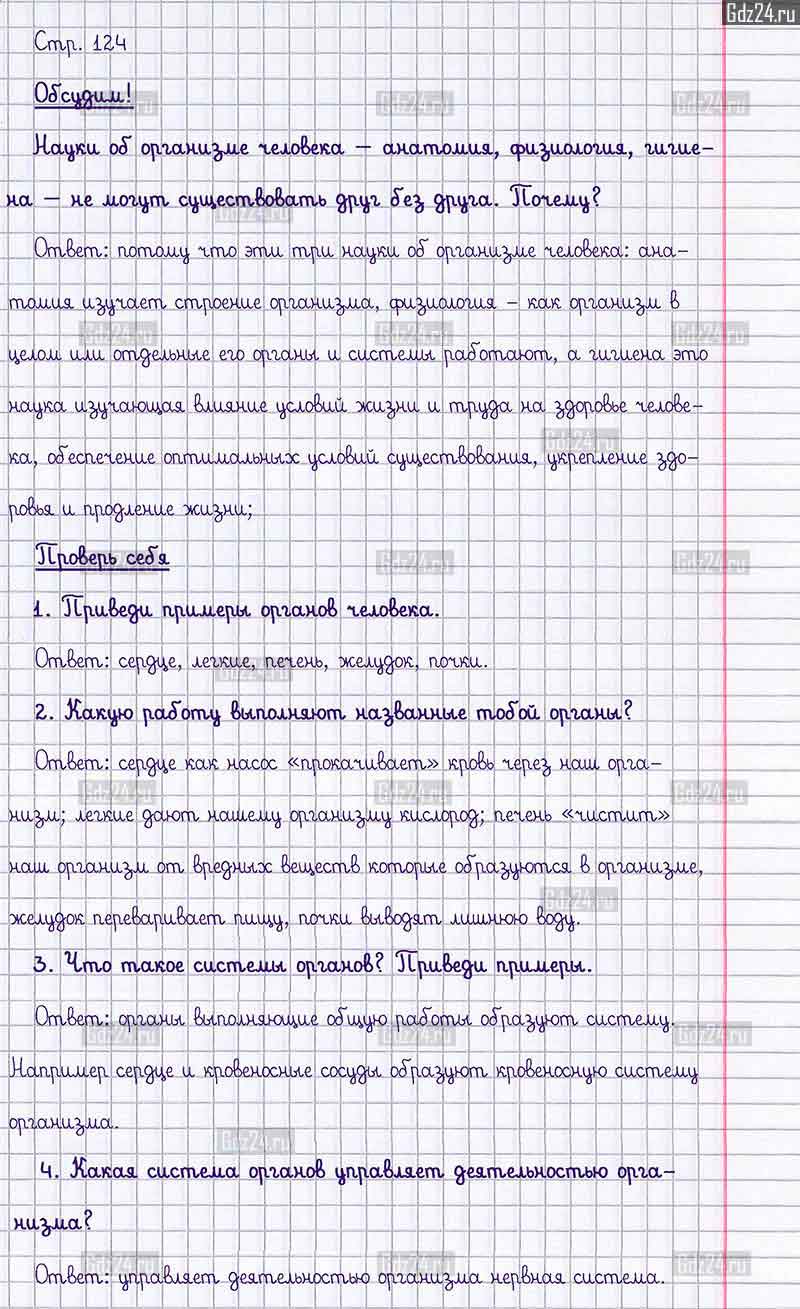 Gdz24.ru
Стр. 124
Обсудим!
Науки об организме человека – анатомия, физиология, гигие-
на – не могут существовать друг без друга. Почему?
Ответ: потому что эти три науки об организме человека: ана-
томия изучает строение организма, физиология – как организм в
целом или отдельные его органы и системы работают, а гигиена это
наука изучающая влияние условий жизни и труда на здоровье челове-
ка, обеспечение оптимальных условий существования, укрепление здо-
ровья и продление жизни;
Проверь себя
1. Приведи примеры органов человека.
Ответ: сердце, легкие, печень, желудок, почки.
2. Какую работу выполняют названные тобой органы?
Ответ: сердце как насос «прокачивает» кровь через наш орга-
низм; легкие дают нашему организму кислород; печень «чистит»
наш организм от вредных веществ которые образуются в организме,
желудок переваривает пищу, почки выводят лишнюю воду.
3. Что такое системы органов? Приведи примеры.
Ответ: органы выполняющие общую работы образуют систему.
Например сердце и кровеносные сосуды образуют кровеносную систему
организма.
4. Какая система органов управляет деятельностью орга-
низма?
Ответ: управляет деятельностью организма нервная система.